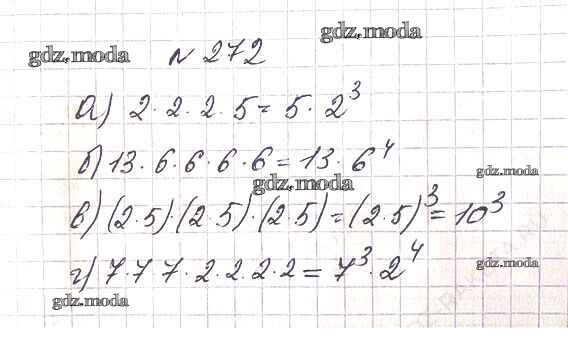 gdz.moda
gdz.moda № 272
а) 2 · 2 · 2 · 5 = 5 · 2³
б) 13 · 6 · 6 · 6 · 6 = 13 · 6⁴
gdz.moda
gdz.moda
в) (2·5)·(2·5)·(2·5) = (2·5)³ = 10³
г) 7·7·7·2·2·2·2 = 7³·2⁴
gdz.moda
gdz.moda